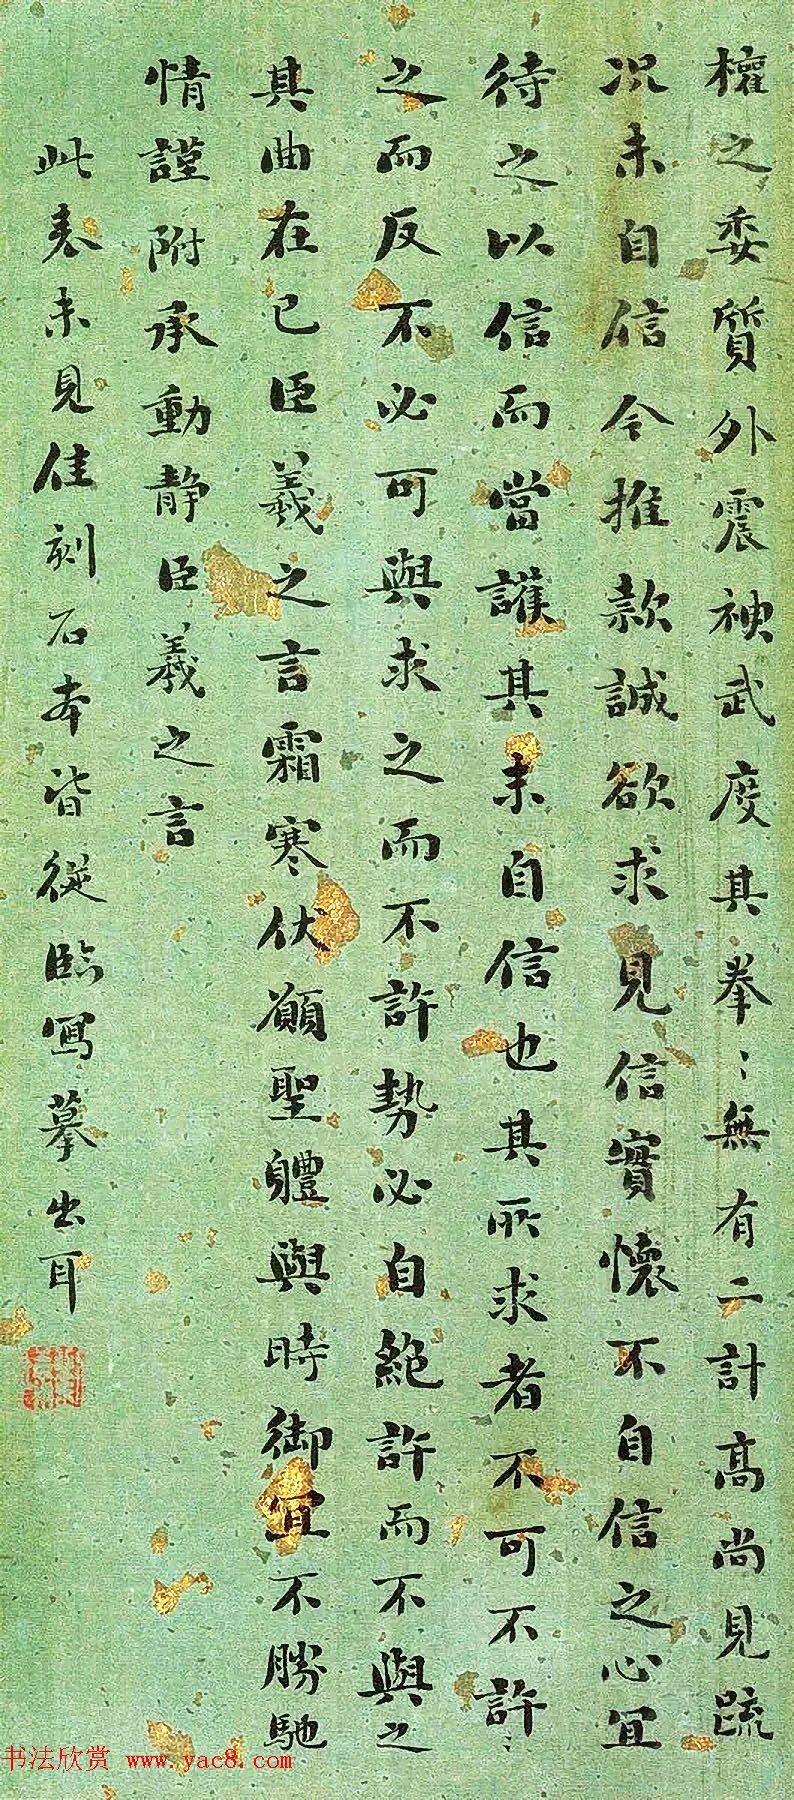 權之委質外震神武度其拳〻無有二計高尚見疏
况未自信今推款誠欲求見信實懷不自信之心宜
待之以信而當護其未自信也其所求者不可不許〻
之而反不必可與求之而不許勢必自絶許而不與之
其曲在己臣羲之言霜寒伏願聖體與時御宜不勝馳
情謹附承動静臣羲之言
此表未見佳刻石本皆從臨寫摹出耳
书法欣赏 www.yac8.com